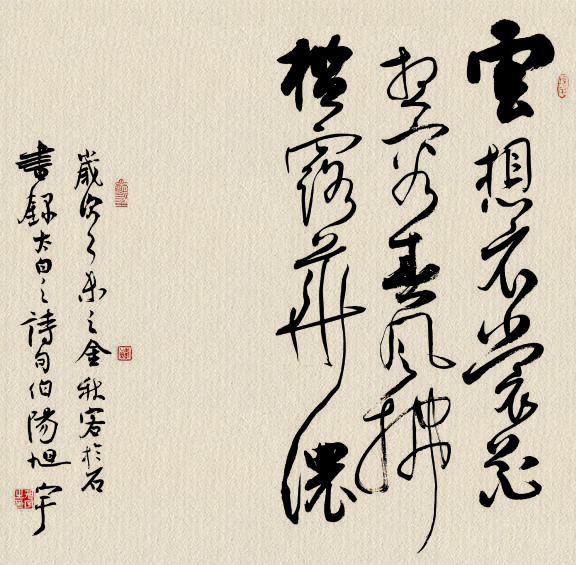 雲想衣裳花
想容春風拂
檻露華濃
歲次乙未之金秋客於石
書錄太白之詩句伯陽旭宇